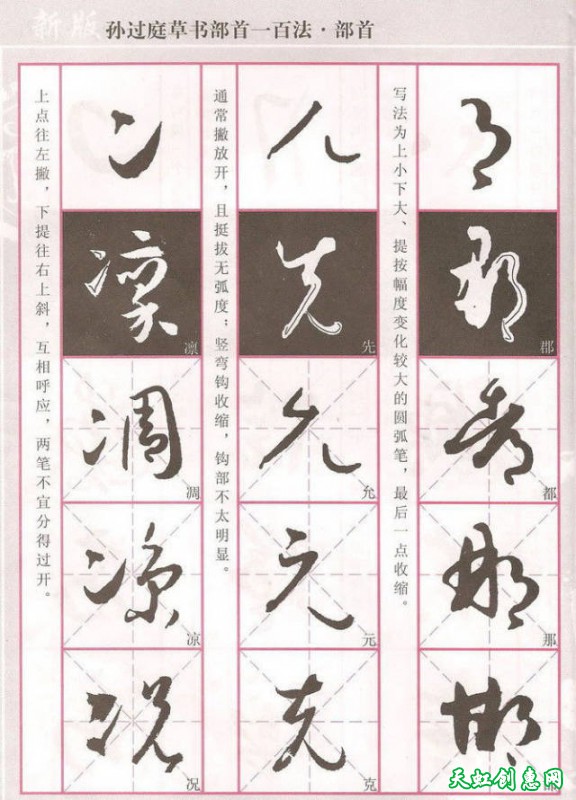 新版 孙过庭草书部首一百法·部首
写法为上小下大、提按幅度变化较大的圆弧笔，最后一点收缩。
郡
都
那
通常撇放开，且挺拔无弧度；竖弯钩收缩，钩部不太明显。
先
允
元
克
上点往左撇，下提往右上斜，互相呼应，两笔不宜分得过开。
凛
凋
凉
况
天虹创惠网